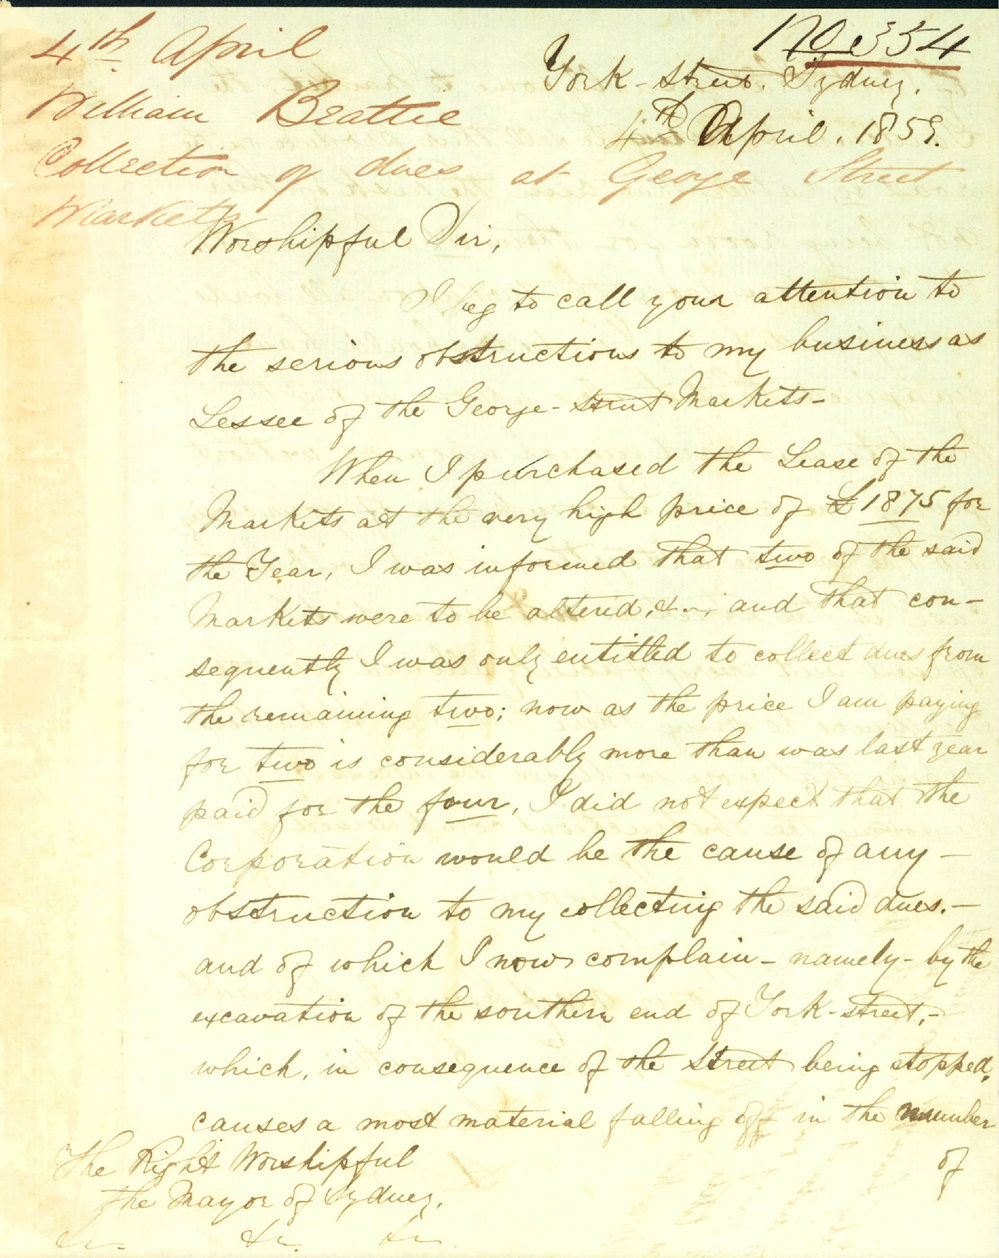 No 354
4th April
William Beattie
Collection of dues at George Street
Markets
York-Street. Sydney.
4th April. 1859.
Worshipful Sir,
I beg to call your attention to
the serious obstructions to my business as
Lessee of the George-Street Markets-
When I purchased the Lease of the
Markets at the very high price of £1875 for
the Year, I was informed that two of the said
Markets were to be altered, &c., and that con-
sequently I was only entitled to collect dues from
the remaining two; now as the price I am paying
for two is considerably more than was last year
paid for the four, I did not expect that the
Corporation would be the cause of any-
obstruction to my collecting the said dues.-
and of which I now complain- namely- by the
excavation of the southern end of York-street,-
which, in consequence of the Street being stopped,
causes a most material falling off in the number
of
The Right Worshipful
the Mayor of Sydney.
&c. &c. &c.